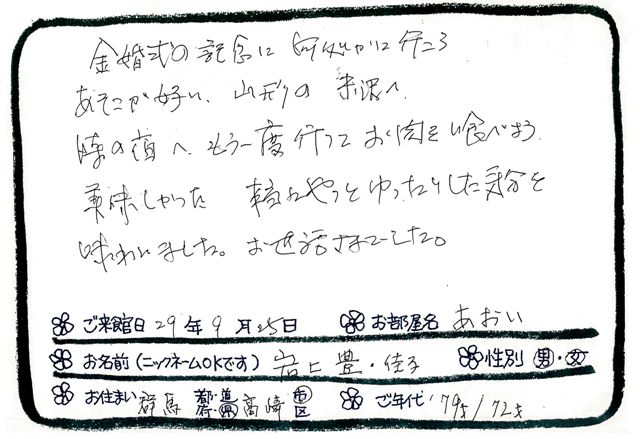 金婚式の記念に何処かに行こう
あそこが好い、山形の米沢へ
時の宿へ、もう一度行ってお肉を食べよう
美味しかった やっとゆったりした気分を
味わいました。お世話さまでした。
ご来館日 29年9月25日 お部屋名 あおい
お名前(ニックネームOKです) 岩上 豊・佳子 性別 男・女
お住まい 群馬 都・道・府・県 高崎 市 区 ご年代 79才/72才